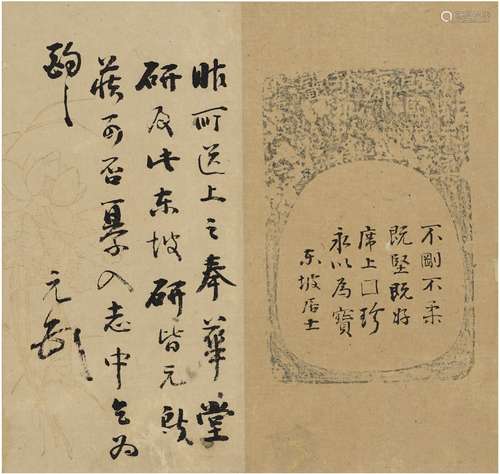 不剛不柔
既堅既好
席上囗珍
永以為寶
东坡居士
昨所送上之奉華堂
研及此东坡研皆元
藏可否纂入志中乞為
酌之
元